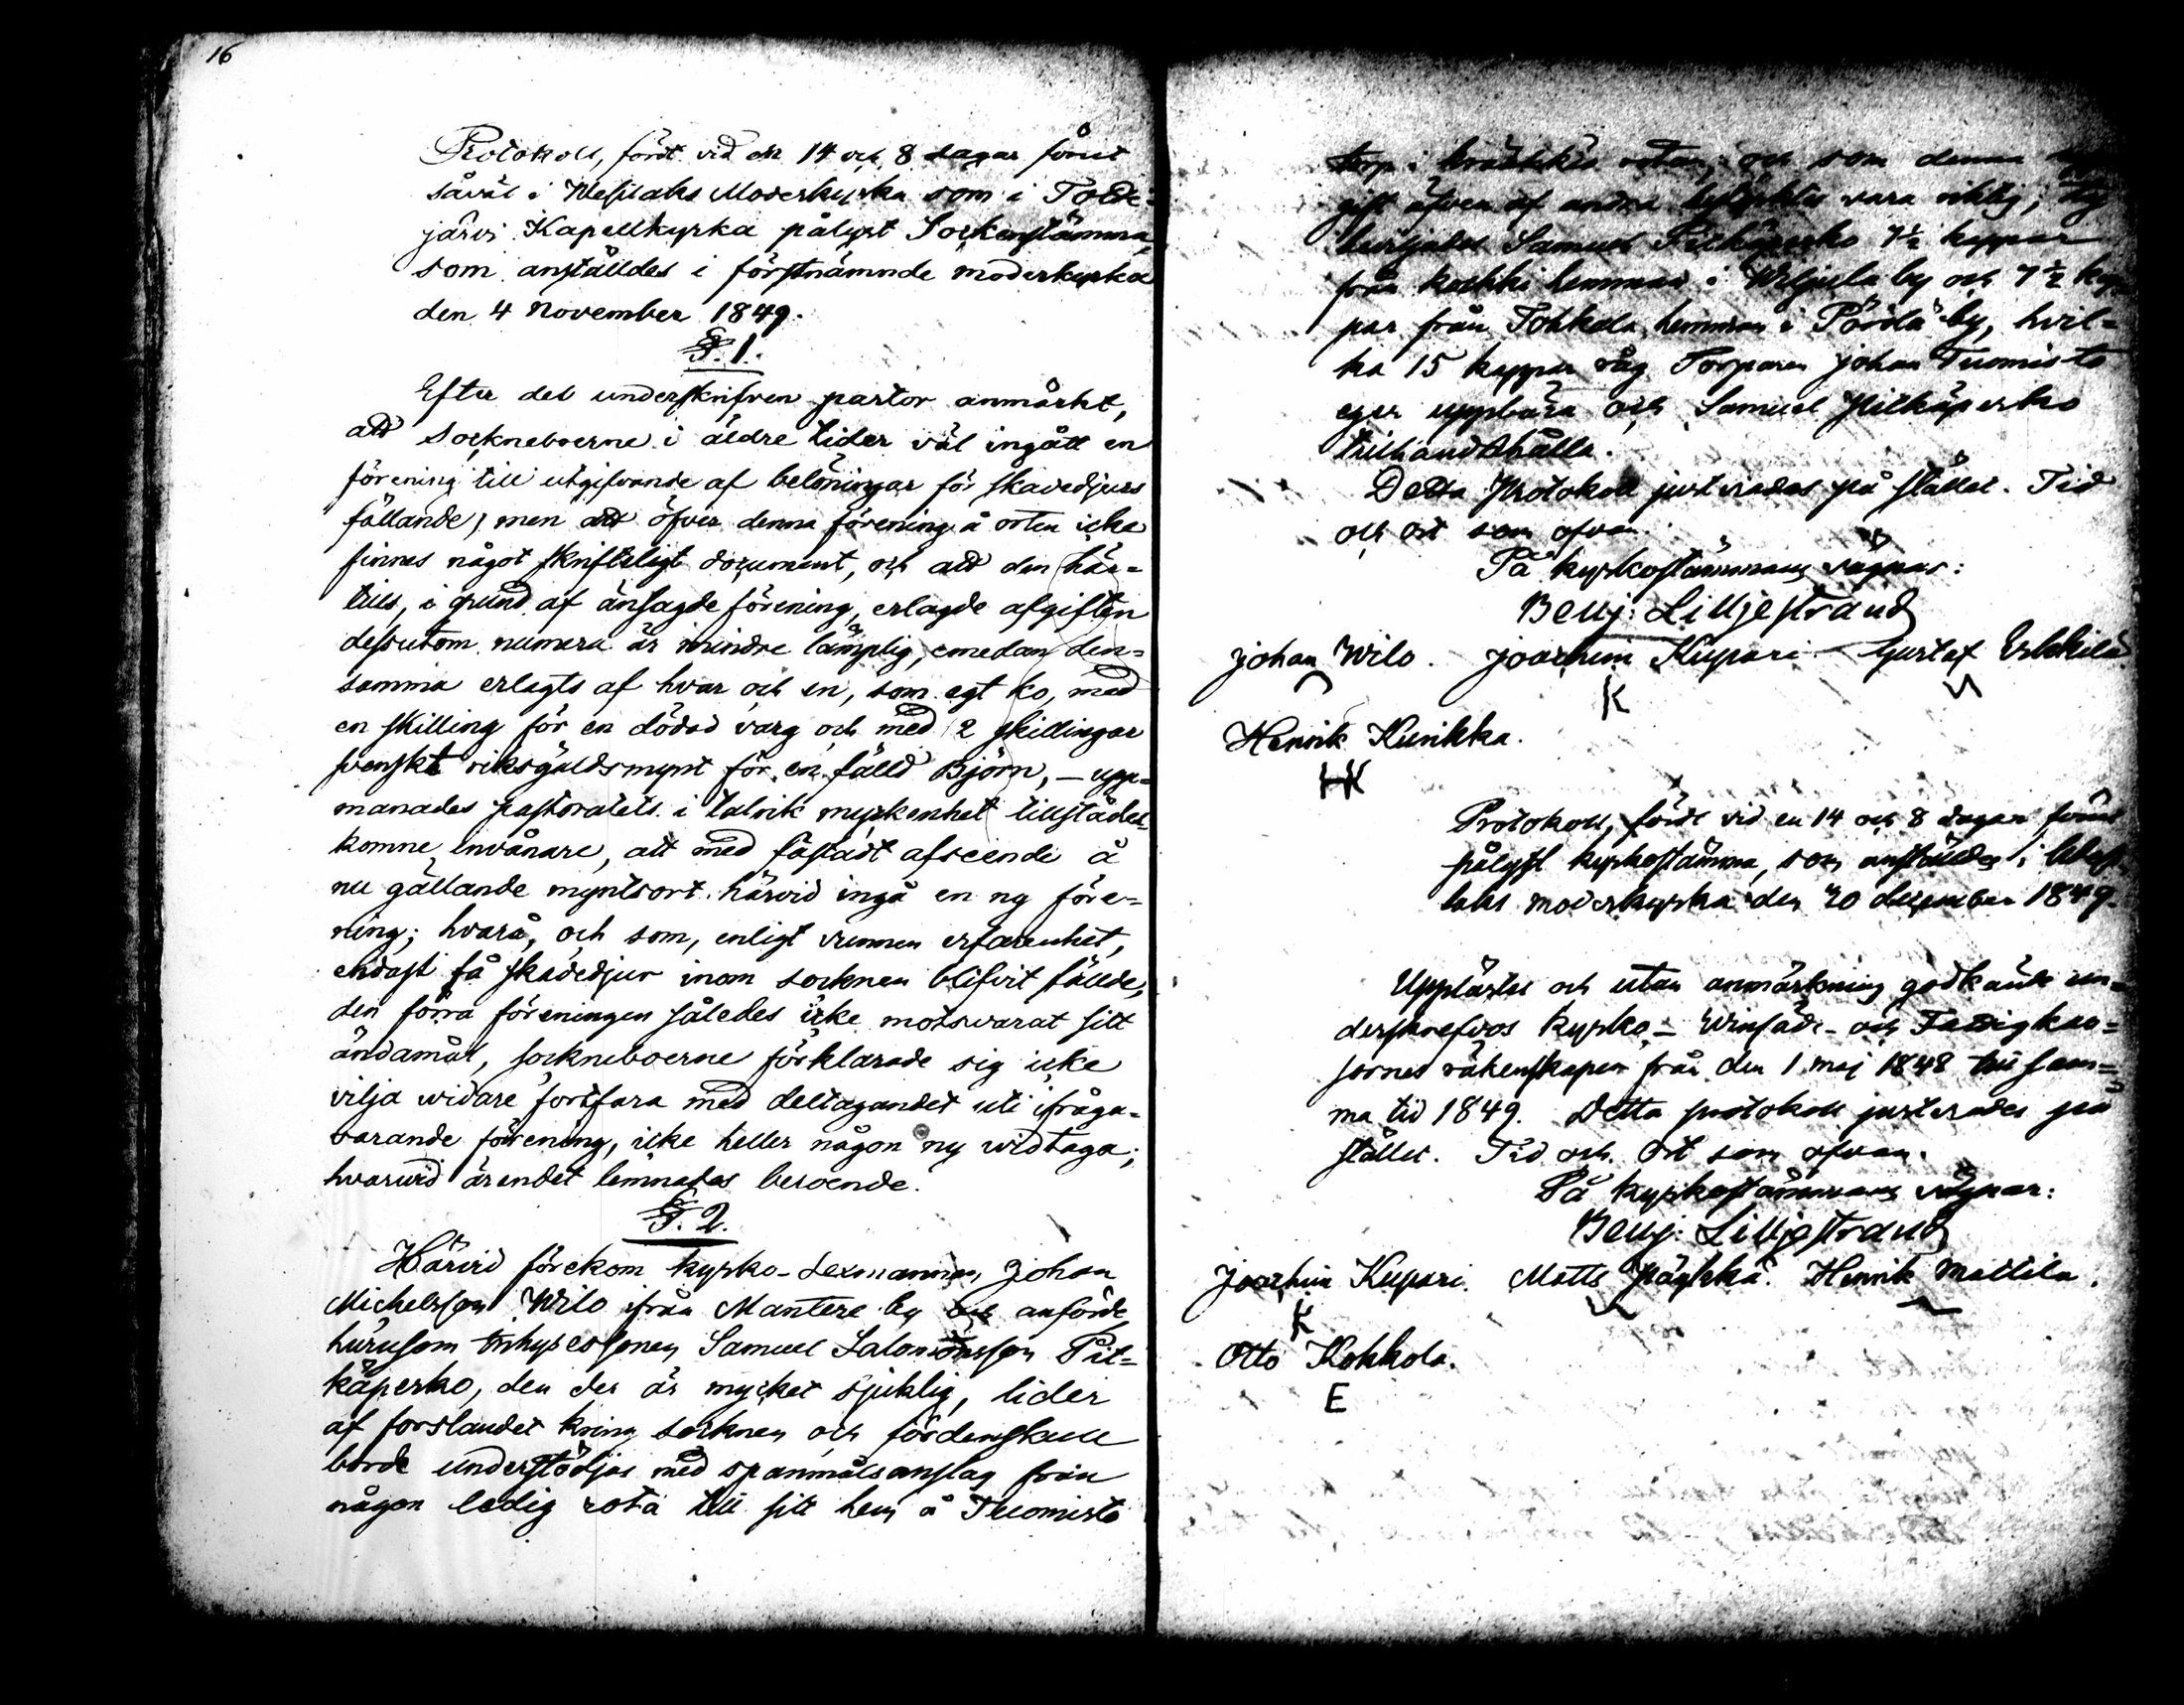 16
Protokoll, fördt vid en 14 och 8 dagar förut
såväl i Wesilaks Moderkyrka som i Tottі-
järvi Kapellkyrka pålyst Sockenstämma,
som anställdes i förstnämnde moderkyrka
den 4 November 1849.
§. 1.
Efter det underskrifven pastor anmärkt,
att Sockneboerne i äldre tider väl ingått en
förening till utgifvande af belöningar för skadedjurs
fällande, men att öfver denna förening å orten icke
finnes något skrifteligt document, och att den här-
tills, i grund af änsagde förening, erlagde afgiften
dessutom numera är mindre lämplig, emedan den-
samma erlagts af hvar och en, som egt ko, med
en skilling för en dödad varg och med 2 skillingar
svenskt riksgäldsmynt för en fälld Björn, — upp-
manades pastoratets i talrik myckenhet tillstädes-
komne invånare, att med fästadt afseende å
nu gällande myntsort härvid ingå en ny före-
ning; hvarå, och som, enligt vunnen erfarenhet,
endast få skadedjur inom socknen blifvit fällde,
den förra föreningen således icke motsvarat sitt
ändamål, sockneboerne förklarade sig icke
vilja widare fortfara med deltagandet uti ifråga-
varande förening, icke heller någon ny widtaga;
hvarvid ärendet lemnades beroende.
§. 2.
Härvid förekom kyrko-Sexmannen Johan
Michelsson Wilo ifrån Mantere by och anförde,
hurusom inhysessonen Samuel Salomonsson Pit-
käperko, den der är mycket sjuklig, lider
af forslandet kring socknen och fördenskull
borde understödjas med spanmålsanslag från
någon ledig rota till sitt hem å Tuomisto
torp i rotan; och som denna
gift äfven af andra vara riktig;
Samuel Pitkäperko 7½ kappar
från Koskki hemman i by och 7½ kap-
par från Tohkola hemman i Pörölä by, hvil-
ka 15 kappar råg Torparen Johan Tuomisto
eger uppbära och Samuel Pitkäperko
tillhandahålla.
Detta Protokoll justerades på stället. Tid
och Ort som ofvan.
På kyrkostämmans vägnar:
Benj: Lilljestrand
Johan Wilo. Joachim Kupari Gustaf Erkkilä.
K
Henrik Kurikka.
HK
Protokoll, fördt vid en 14 och 8 dagar förut
pålyst kyrkostämma, som anställdes i Wesi-
laks moderkyrka den 30 december 1849.
Upplästes och utan anmärkning godkände un-
derskrefvos Kyrko- Winsäds- och Fattigkas-
sornes räkenskaper från den 1 maj 1848 till sam-
ma tid 1849. Detta protokoll justerades på
stället. Tid och Ort som ofvan.
På kyrkostämmans vägnar:
Benj: Lilljestrand
Joachim Kupari. Matts Päykkä. Henrik Mattila.
K
Otto Kokkola.
E